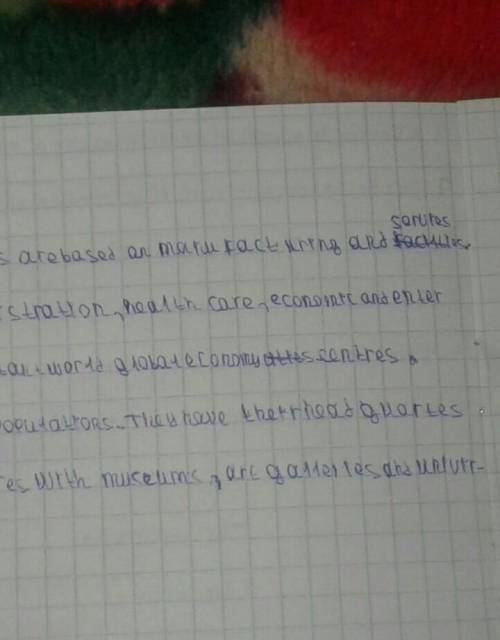 servises
s are based on manufacturing and
stration, health care, economic and enter
tant world global economy centres.
opulations. They have their head quartes
es with museums, art galleries and univir-